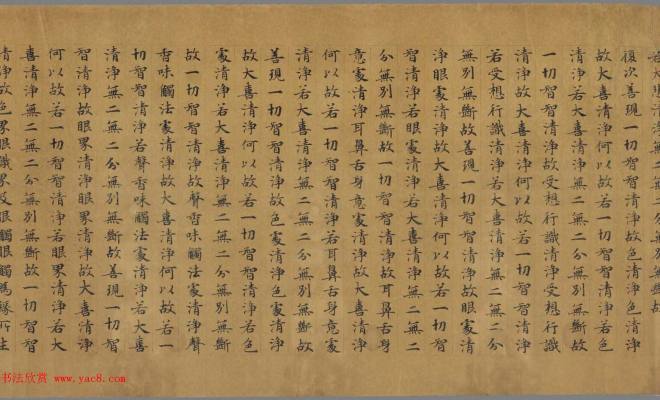 若大悲清淨無二無二分無別無斷故
復次善現一切智智清淨故色清淨色清淨
故大喜清淨何以故若一切智智清淨若色
清淨若大喜清淨無二無二分無別無斷故
一切智智清淨故受想行識清淨受想行識
清淨故大喜清淨何以故若一切智智清淨
若受想行識清淨若大喜清淨無二無二分
無別無斷故善現一切智智清淨故眼處清
淨眼處清淨故大喜清淨何以故若一切智
智清淨若眼處清淨若大喜清淨無二無二
分無別無斷故一切智智清淨故耳鼻舌身
意處清淨耳鼻舌身意處清淨故大喜清淨
何以故若一切智智清淨若耳鼻舌身意處
清淨若大喜清淨無二無二分無別無斷故
善現一切智智清淨故色處清淨色處清淨
故大喜清淨何以故若一切智智清淨若色
處清淨若大喜清淨無二無二分無別無斷
故一切智智清淨故聲香味觸法處清淨聲
香味觸法處清淨故大喜清淨何以故若一
切智智清淨若聲香味觸法處清淨若大喜
清淨無二無二分無別無斷故善現一切智
智清淨故眼界清淨眼界清淨故大喜清淨
何以故若一切智智清淨若眼界清淨若大
喜清淨無二無二分無別無斷故一切智智
清淨故色界眼識界及眼觸眼觸爲緣所生
书法欣赏 www.yac8.com